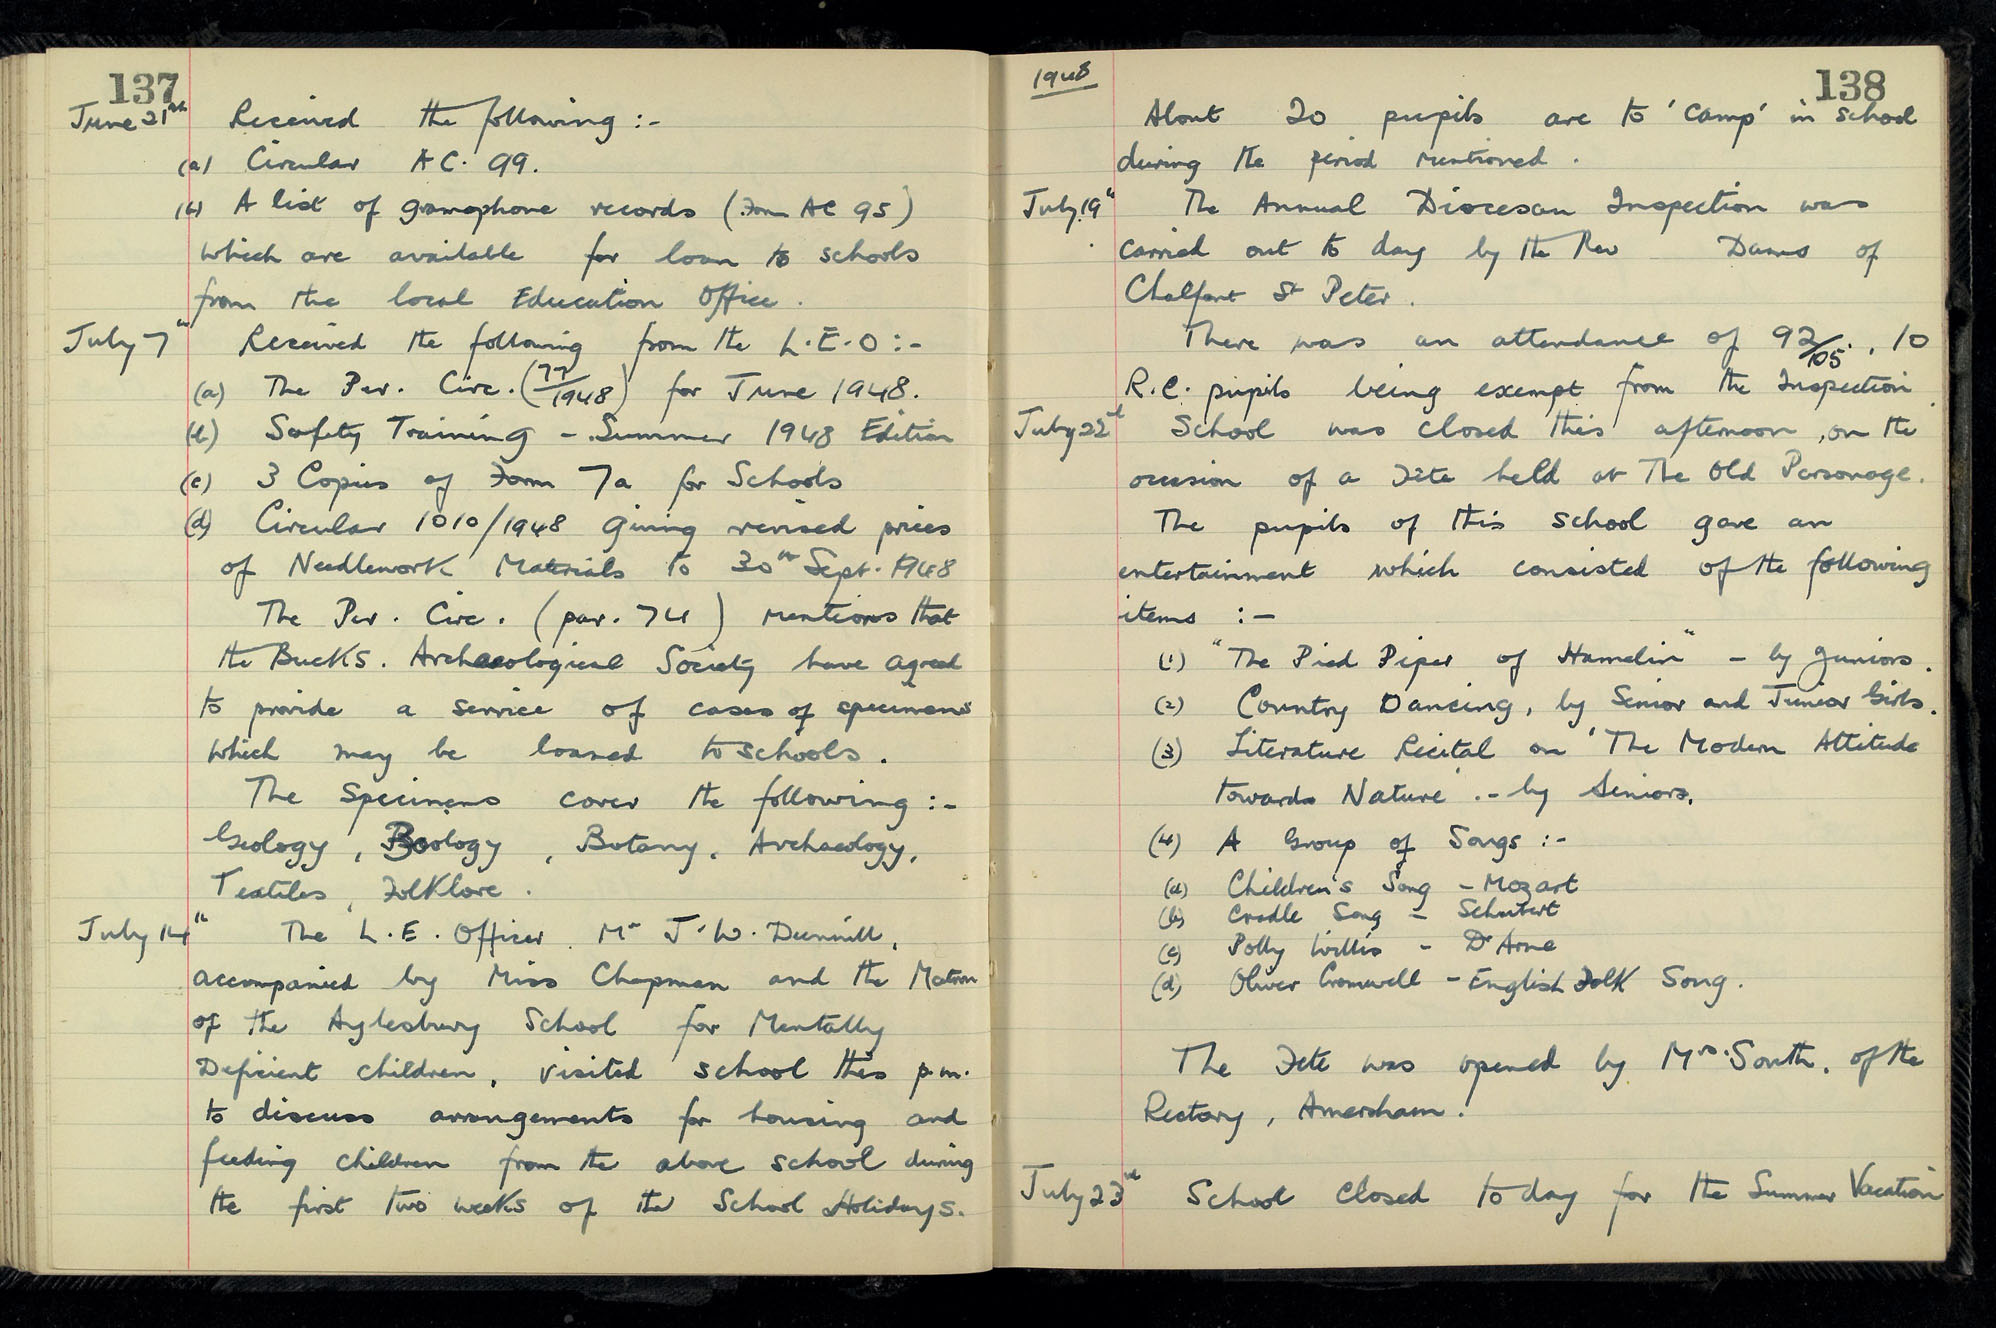 137
June 21st Received the following :-
(a) Circular A C. 99.
(b) A list of gramophone records (Form AC 95)
which are available for loan to schools
from the local Education Office.
July 7th Received the following from the L.E.O :-
(a) The Per. Circ. (77/1948) for June 1948.
(b) Safety Training - Summer 1948 Edition
(c) 3 Copies of Form 7a for Schools
(d) Circular 1010/1948 giving revised prices
of Needlework Materials to 30th Sept. 1948
The Per. Circ. (par. 74) mentions that
the Bucks. Archaeological Society have agreed
to provide a service of cases of specimens
which may be loaned to schools.
The Specimens cover the following :-
Geology, , Botany, Archaeology,
Textiles, Folklore.
July 14th The L.E. Officer, Mr J.W. Dunnill,
accompanied by Miss Chapman and the Matron
of the Aylesbury School for Mentally
Deficient children, visited school this p.m.
to discuss arrangements for housing and
feeding children from the above school during
the first two weeks of the School Holidays.
1948
138
About 20 pupils are to 'camp' in school
during the period mentioned.
July 19th The Annual Diocesan Inspection was
carried out to day by the Rev Dams of
Chalfont St Peter.
There was an attendance of 92/105, 10
R.C. pupils being exempt from the Inspection.
July 22nd School was closed this afternoon, on the
occasion of a Fête held at The Old Parsonage.
The pupils of this school gave an
entertainment which consisted of the following
items :-
(1) "The Pied Piper of Hamelin" - by Juniors.
(2) Country Dancing, by Senior and Junior Girls.
(3) Literature Recital on 'The Modern Attitude
towards Nature'. - by Seniors.
(4) A Group of Songs :-
(a) Children's Song - Mozart
(b) Cradle Song - Schubert
(c) Polly Willis - Dr Arne
(d) Oliver Cromwell - English Folk Song.
The Fete was opened by Mrs. South, of the
Rectory, Amersham.
July 23rd School closed to day for the Summer Vacation